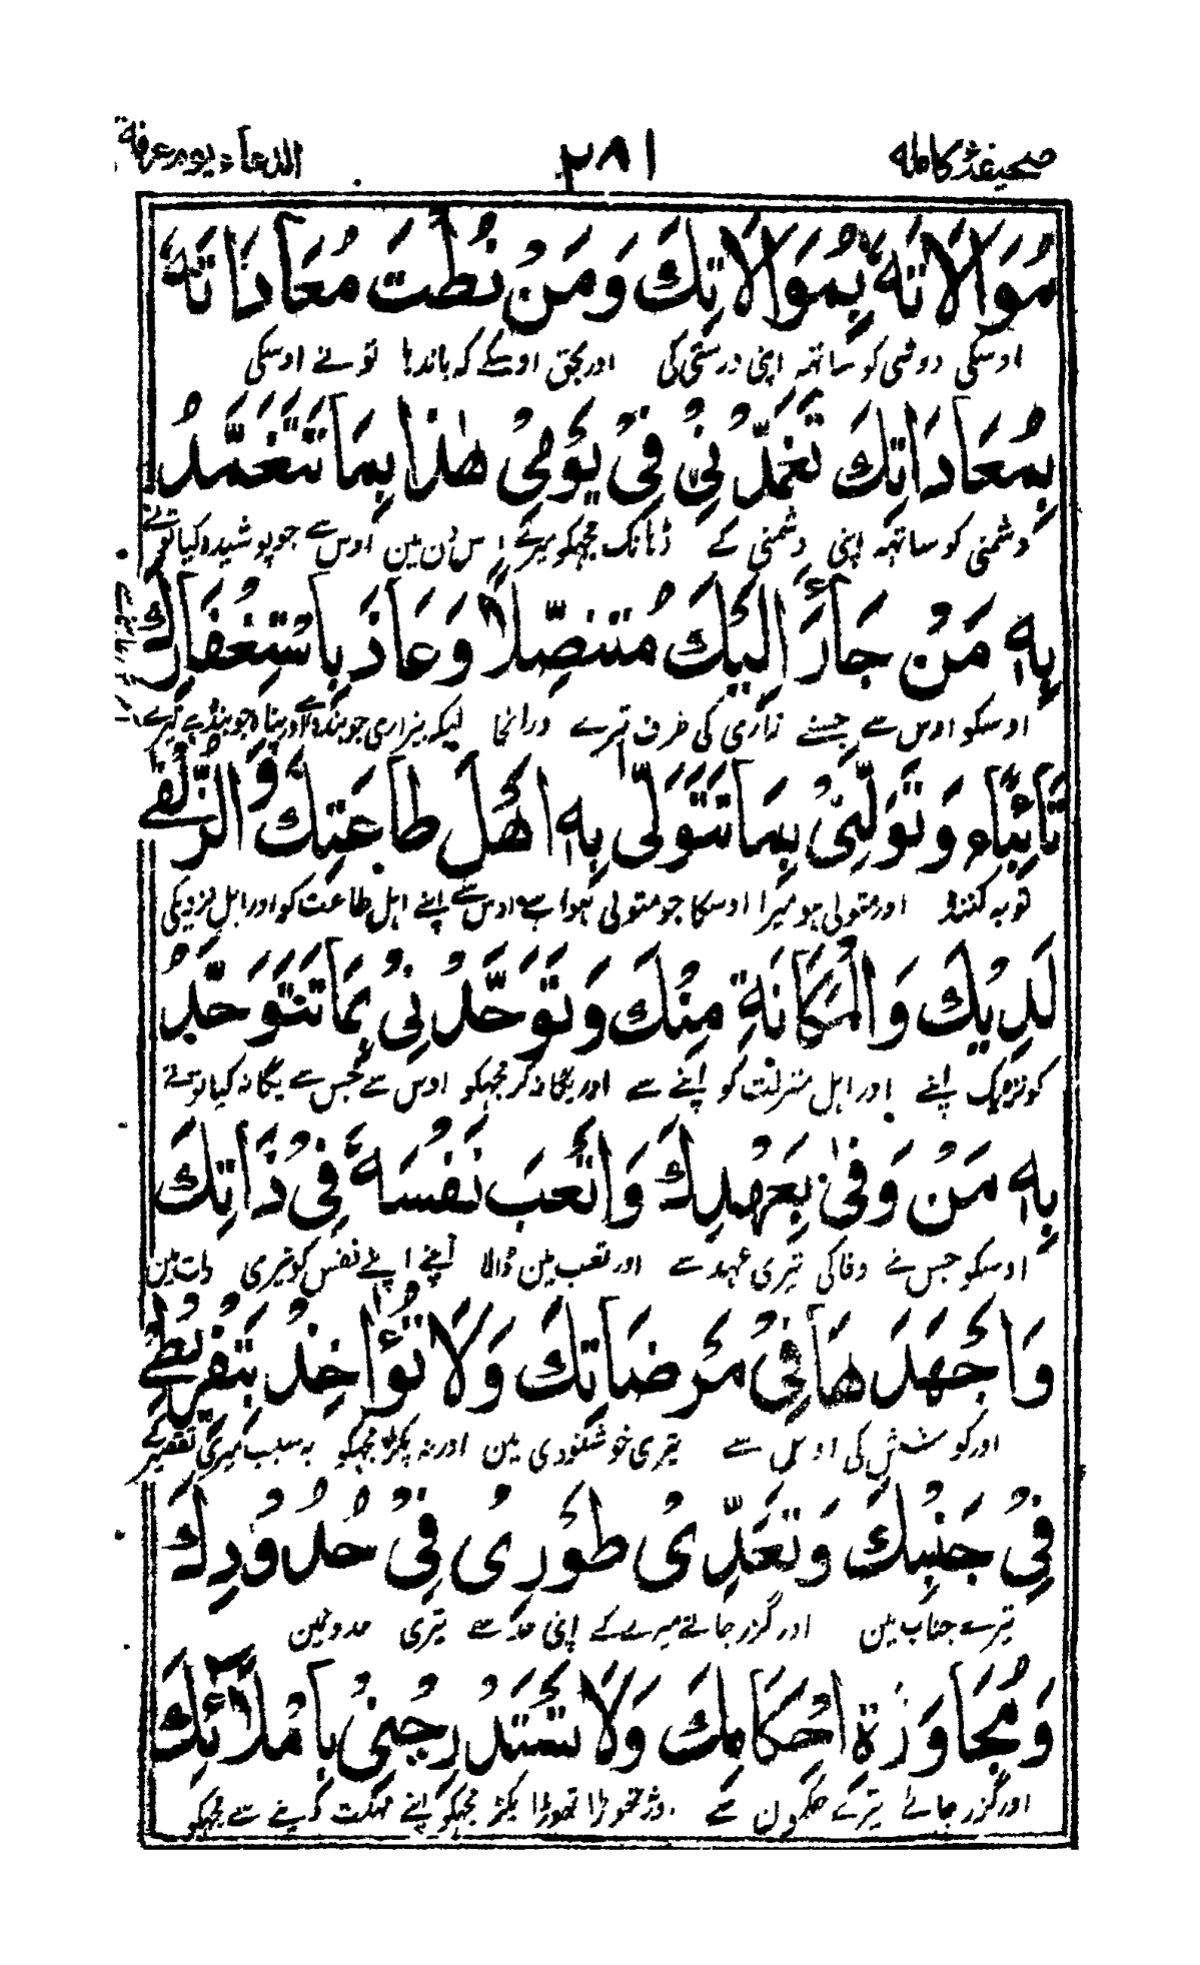 صحیفۂ کاملہ ٢٨١ الدعاء یوم عرفۃ
مُوَالَاتَهُ بِمُوَالَاتِكَ وَمَنْ نُطْتَ مُعَادَاتَهُ
اوسکی دوستی کو ساتھ اپنی درستی کی اور بحق اوسکے کہ باندھا تو نے اوسکی
بِمُعَادَاتِكَ تَغَمَّدْنِيْ فِيْ يَوْمِيْ هٰذَا بِمَا تَتَغَمَّدُ
دشمنی کو ساتھ اپنی دشمنی کے ڈہانک مجہکو میرے اس دن مین اوس سے جو پوشیدہ کیا تو نے
بِهٖ مَنْ جَأَرَ اِلَيْكَ مُتَنَصِّلًا وَعَاذَ بِاسْتِغْفَارِكَ
اوسکو اوس سے جسنے زاری کی طرف تیرے درانحا لیکہ بیزاری جوہندہ اور پناہ جوہندہ تیرے
تَائِبًا وَتَوَلَّنِيْ بِمَا تَتَوَلّٰى بِهٖ اَهْلَ طَاعَتِكَ وَالزُّلْفٰى
توبہ کنندہ اور متولی ہو میرا اوسکا جو متولی ہوا ہے اوس سے اپنے اہل طاعت کو اور اہل نزدیکی
لَدَيْكَ وَالْمَكَانَةِ مِنْكَ وَتَوَحَّدْنِيْ بِمَا تَتَوَحَّدُ
کو نزدیک اپنے اور اہل منزلت کو اپنے سے اور یگانہ کر مجہکو اوس سے جس سے یگانہ کیا تو نے
بِهٖ مَنْ وَفٰى بِعَهْدِكَ وَاَتْعَبَ نَفْسَهُ فِيْ ذَاتِكَ
اوسکو جس نے وفا کی تیری عہد سے اور تعب مین ڈالا اپنے نفس کو تیری ذات مین
وَاَجْهَدَهَا فِيْ مَرْضَاتِكَ وَلَا تُؤَاخِذْنِيْ بِتَفْرِيْطِيْ
اور کوشش کی اوس سے تیری خوشنودی مین اور نہ پکڑ مجہکو بہ سبب میری تقصیر کے
فِيْ جَنْبِكَ وَتَعَدِّيْ طَوْرِيْ فِيْ حُدُوْدِكَ
تیرے جناب مین اور گزر جانے میرے کے اپنی حد سے تیری حدو نمین
وَمُجَاوَزَةِ اَحْكَامِكَ وَلَا تَسْتَدْرِجْنِيْ بِاِمْلَائِكَ
اور گزر جانے تیرے حکمون سے تھوڑا تھوڑا پکڑ مجہکو اپنے مہلت دینے سے مجہکو